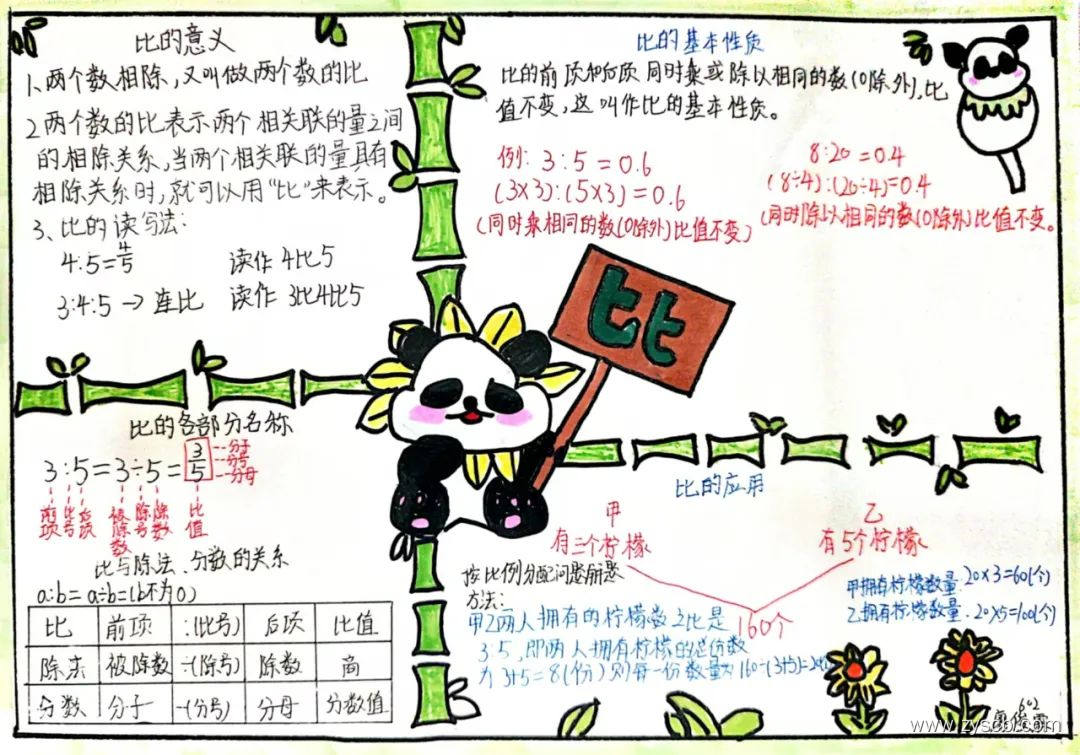 比的意义
1、两个数相除，又叫做两个数的比
2、两个数的比表示两个相关联的量之间
的相除关系，当两个相关联的量具有
相除关系时，就可以用“比”来表示。
3、比的读写法：
4:5=4/5 读作 4比5
3:4:5 → 连比 读作 3比4比5
比的基本性质
比的前项和后项同时乘或除以相同的数(0除外)，比
值不变，这叫作比的基本性质。
例: 3:5=0.6
(3×3):(5×3)=0.6
(同时乘相同的数(0除外)比值不变)
8:20=0.4
(8÷4):(20÷4)=0.4
(同时除以相同的数(0除外)比值不变。
比
比的各部分名称
3:5=3÷5=3/5
分子
分号
分母
前项 比号 后项 被除数 除号 除数 比值
比与除法、分数的关系
a:b= a÷b=(b不为0)
比 前项 :(比号) 后项 比值
除法 被除数 ÷(除号) 除数 商
分数 分子 -(分号) 分母 分数值
比的应用
甲
有三个柠檬
乙
有5个柠檬
160个
按比例分配问题
方法:
甲乙两人拥有的柠檬数之比是
3:5，即两人拥有柠檬的总份数
为 3+5=8(份) 则每一份数量为 160÷(3+5)=
甲拥有柠檬数量: 20×3=60(个)
乙拥有柠檬数量: 20×5=100(个)
602